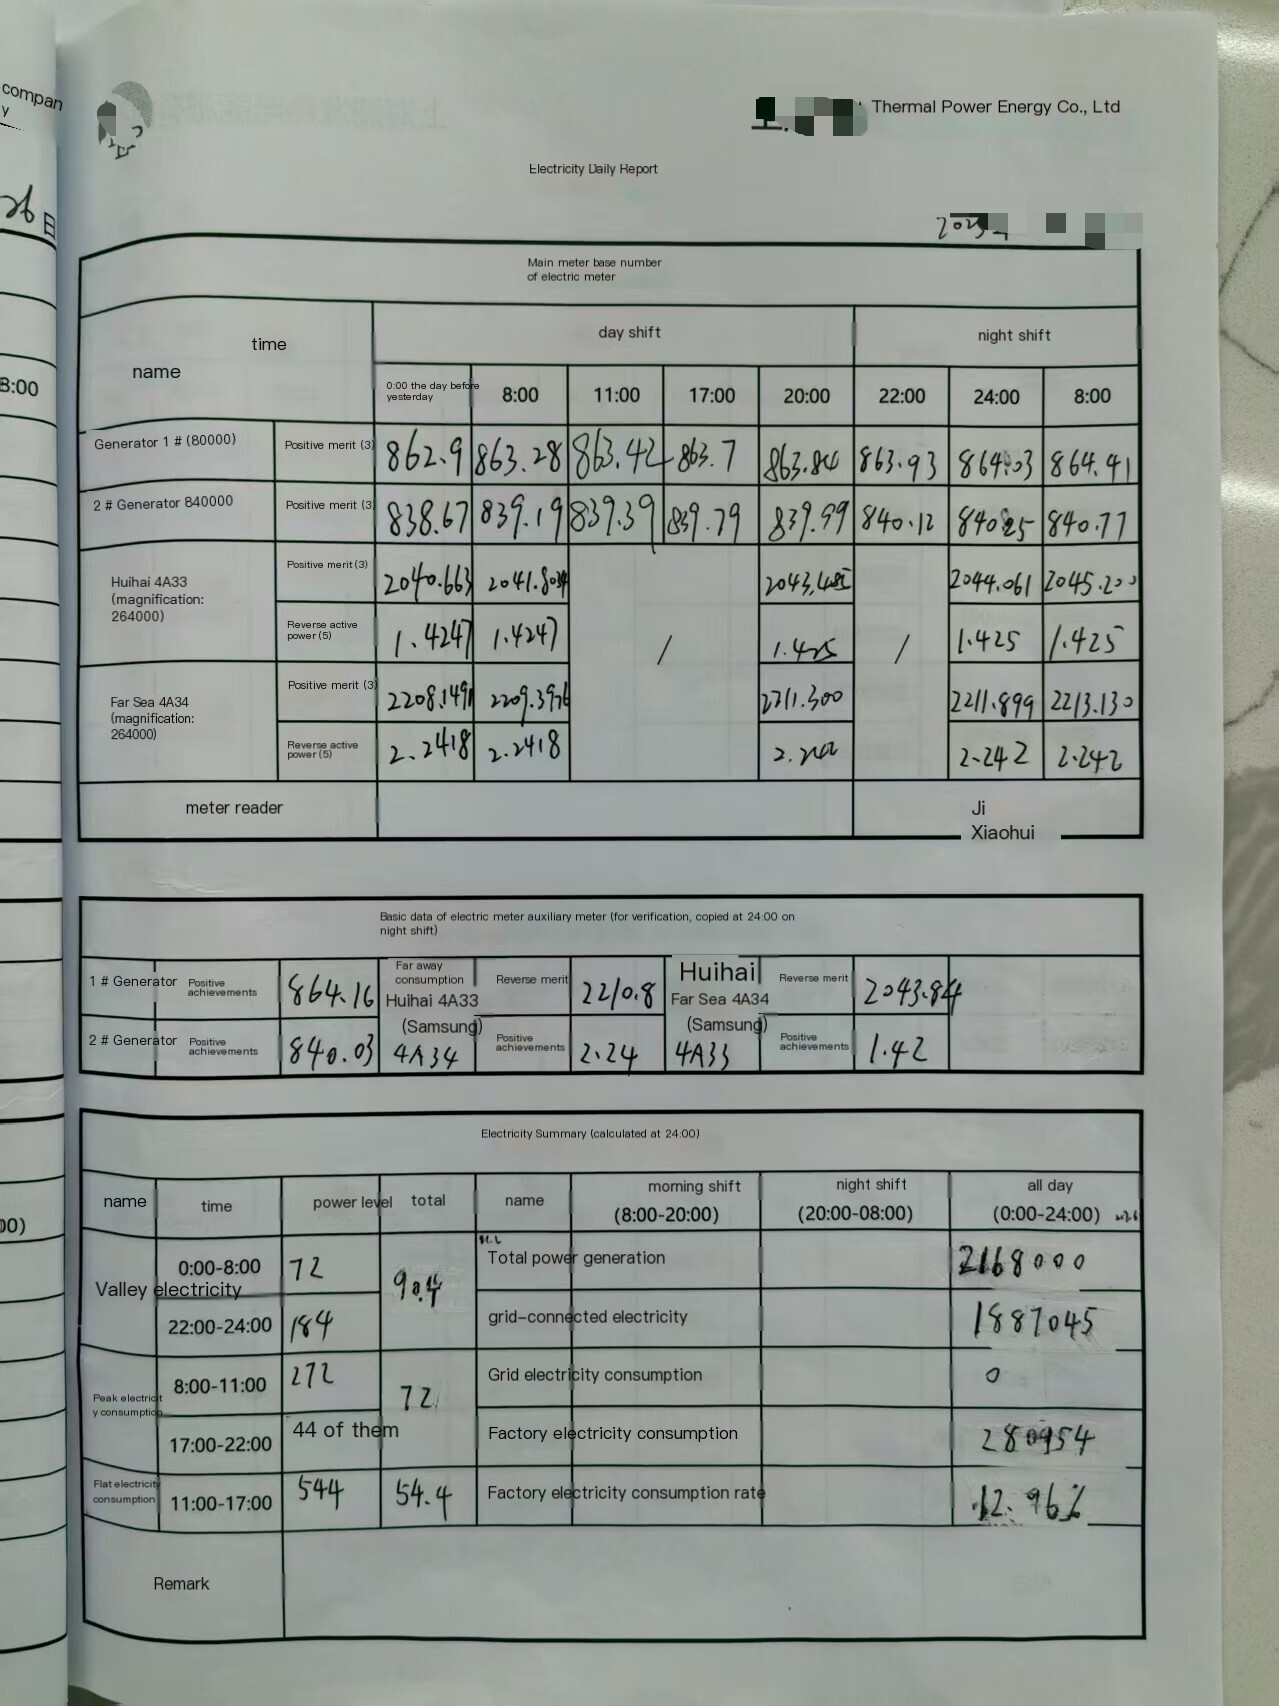 compan
y
26日
8:00
00)
Thermal Power Energy Co., Ltd
Electricity Daily Report
2025年
Main meter base number
of electric meter
time
name
day shift
night shift
0:00 the day before
yesterday
8:00
11:00
17:00
20:00
22:00
24:00
8:00
Generator 1 # (80000)
Positive merit (3)
862.9 863.28 863.42 863.7 863.84 863.93 864.03 864.41
2 # Generator 840000
Positive merit (3)
838.67 839.19 839.39 839.79 839.99 840.12 840.25 840.77
Huihai 4A33
(magnification:
264000)
Positive merit (3)
2040.663 2041.8034 2043.485 2044.061 2045.200
Reverse active
power (5)
1.4247 1.4247 / 1.425 / 1.425 1.425
Far Sea 4A34
(magnification:
264000)
Positive merit (3)
2208.1491 2209.3976 2211.300 2211.899 2213.130
Reverse active
power (5)
2.2418 2.2418 2.242 2.242 2.242
meter reader
Ji
Xiaohui
Basic data of electric meter auxiliary meter (for verification, copied at 24:00 on
night shift)
1 # Generator
Positive
achievements
864.16
Far away
consumption
Huihai 4A33
(Samsung)
4A34
Reverse merit
2210.8
Huihai
Far Sea 4A34
(Samsung)
4A33
Reverse merit
2043.84
2 # Generator
Positive
achievements
840.03
Positive
achievements
2.24
Positive
achievements
1.42
Electricity Summary (calculated at 24:00)
name
time
power level
total
name
morning shift
(8:00-20:00)
night shift
(20:00-08:00)
all day
(0:00-24:00)
Valley electricity
0:00-8:00
72
90.4
Total power generation
2168000
22:00-24:00
184
grid-connected electricity
1887045
Peak electricit
y consumption
8:00-11:00
272
72
Grid electricity consumption
0
17:00-22:00
44 of them
Factory electricity consumption
280954
Flat electricity
consumption
11:00-17:00
544
54.4
Factory electricity consumption rate
12.96%
Remark